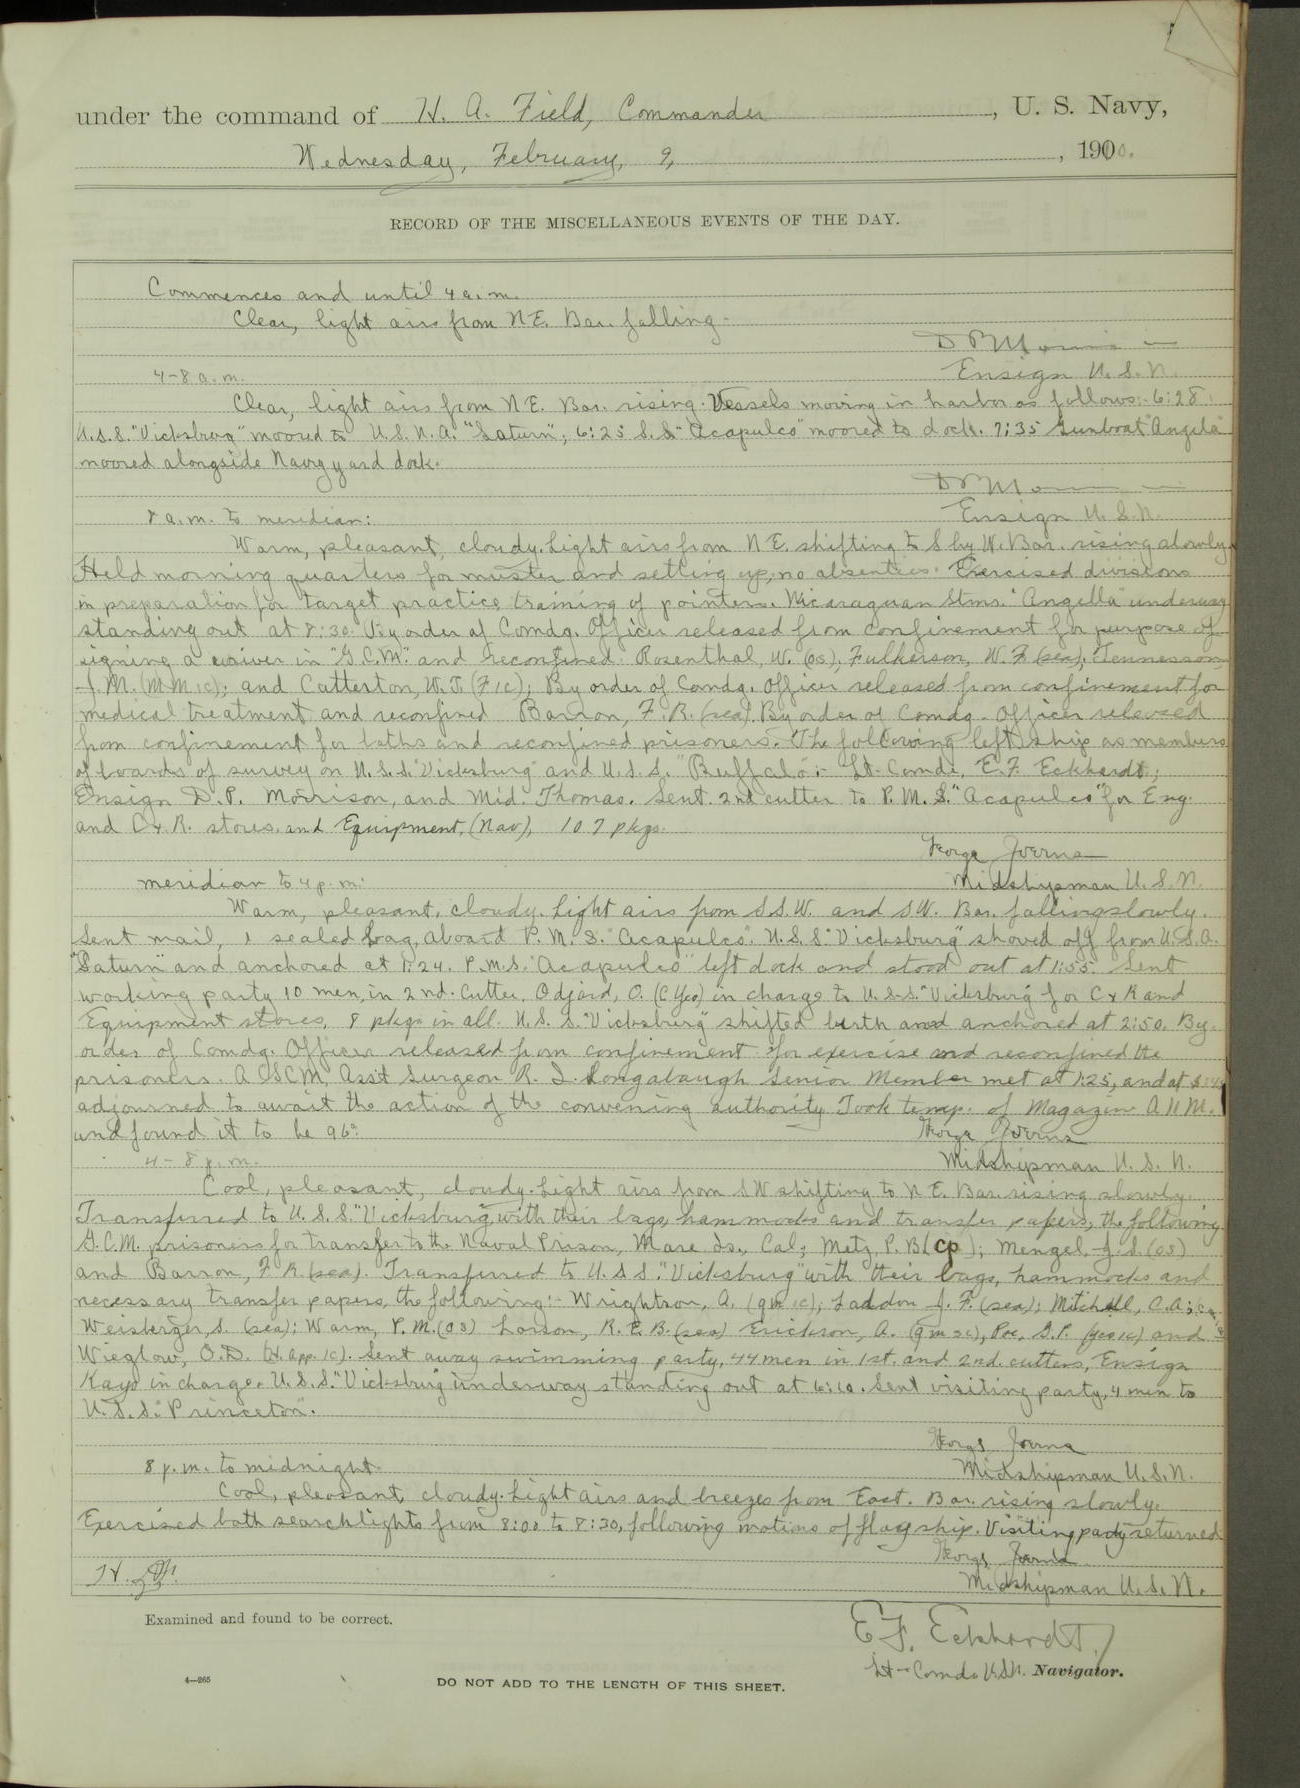 under the command of H. A. Field, Commander, U. S. Navy,
Wednesday, February, 9, 190
RECORD OF THE MISCELLANEOUS EVENTS OF THE DAY.
Commences and until 4 a.m.
Clear, light airs from NE. Bar. falling.
4-8 a.m.
Ensign U.S.N.
Clear, light airs from NE. Bar. rising. Vessels moving in harbor as follows:- 6:28
U.S.S. "Vicksburg" moored to U.S.N.A. "Saturn", 6:25 S.S. "Acapulco" moored to dock. 7:35 Gunboat "Angela"
moored alongside Navy yard dock.
8 a.m. to meridian:
Ensign U.S.N.
Warm, pleasant, cloudy. Light airs from NE. shifting to S by W. Bar. rising slowly.
Held morning quarters for muster and setting up, no absentees. Exercised divisions
in preparation for target practice, training of pointers. Nicaraguan Stmr. "Angella" underway
standing out at 8:30. By order of Comdg. Officer released from confinement for purpose of
signing a waiver in "G.C.M." and reconfined. Rosenthal, W. (os), Fulkerson, W. F. (sea), Tennesson
J. M. (MM 1c); and Catterton, W. T. (F 1c); By order of Comdg. Officer released from confinement for
medical treatment and reconfined Barron, F. R. (sea). By order of Comdg. Officer released
from confinement for baths and reconfined prisoners. The following left ship as members
of boards of survey on U.S.S. "Vicksburg" and U.S.S. "Buffalo":- Lt. Comdr. E. F. Eckhardt;
Ensign D. P. Morrison, and Mid. Thomas. Sent 2nd cutter to P.M.S. "Acapulco" for Eng.
and C & R. stores and Equipment, (Nav), 107 pkgs.
George
meridian to 4 p.m:
Midshipman U.S.N.
Warm, pleasant, cloudy. Light airs from SSW. and SW. Bar. falling slowly.
Sent mail, 1 sealed bag, aboard P.M.S. "Acapulco". U.S.S. "Vicksburg" shoved off from U.S.A.
"Saturn" and anchored at 1:24. P.M.S. "Acapulco" left dock and stood out at 1:55. Sent
working party 10 men, in 2nd. Cutter, Odjard, O. (C Yeo) in charge to U.S.S. "Vicksburg" for C & R and
Equipment stores, 8 pkgs in all. U.S.S. "Vicksburg" shifted berth and anchored at 2:50. By
order of Comdg. Officer released from confinement for exercise and reconfined the
prisoners. A GSCM, Ass't Surgeon R. I. Longabaugh Senior Member met at 1:25, and at
adjourned to await the action of the convening authority Took temp. of Magazine
and found it to be 96°.
George
4-8 p.m.
Midshipman U.S.N.
Cool, pleasant, cloudy. Light airs from SW shifting to NE. Bar. rising slowly.
Transferred to U.S.S. "Vicksburg" with their bags, hammocks and transfer papers, the following
G.C.M. prisoners for transfer to the Naval Prison, Mare Is., Cal; Metz, P. B. (CP); Mengel, J. S. (os)
and Barron, F. R. (sea). Transferred to U.S.S. "Vicksburg" with their bags, hammocks and
necessary transfer papers, the following:- Wrightson, A. (qm 1c), Laddon J. F. (sea); Mitchell, C. A.
Weisberger, S. (sea); Warm, P. M. (os) Larson, R. E. B. (sea) Erickson, A. (gm 2c), Poe, G. P. (yeo 1c) and
Wieglow, O. D. (H. app. 1c). Sent away swimming party, 44 men in 1st. and 2nd. cutters, Ensign
Kays in charge. U.S.S. "Vicksburg" underway standing out at 6:10. Sent visiting party, 4 men to
U.S.S. "Princeton".
George
8 p.m. to midnight
Midshipman U.S.N.
Cool, pleasant, cloudy. Light airs and breezes from East. Bar. rising slowly.
Exercised both searchlights from 8:00 to 8:30, following motions of flagship. Visiting party returned
George
Midshipman U.S.N.
Examined and found to be correct.
E. F. Eckhardt,
Lt-Comdr U.S.N. Navigator.
4—265
DO NOT ADD TO THE LENGTH OF THIS SHEET.